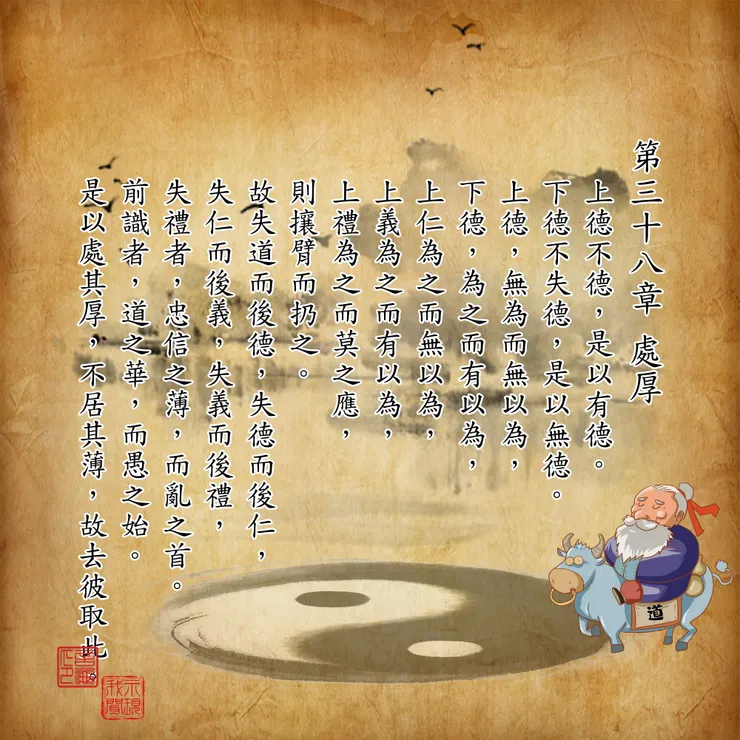 第三十八章 處厚
上德不德，是以有德。
下德不失德，是以無德。
上德，無為而無以為，
下德，為之而有以為，
上仁為之而無以為，
上義為之而有以為，
上禮為之而莫之應，
則攘臂而扔之。
故失道而後德，失德而後仁，
失仁而後義，失義而後禮，
失禮者，忠信之薄，而亂之首。
前識者，道之華，而愚之始。
是以處其厚，不居其薄，故去彼取此。
道